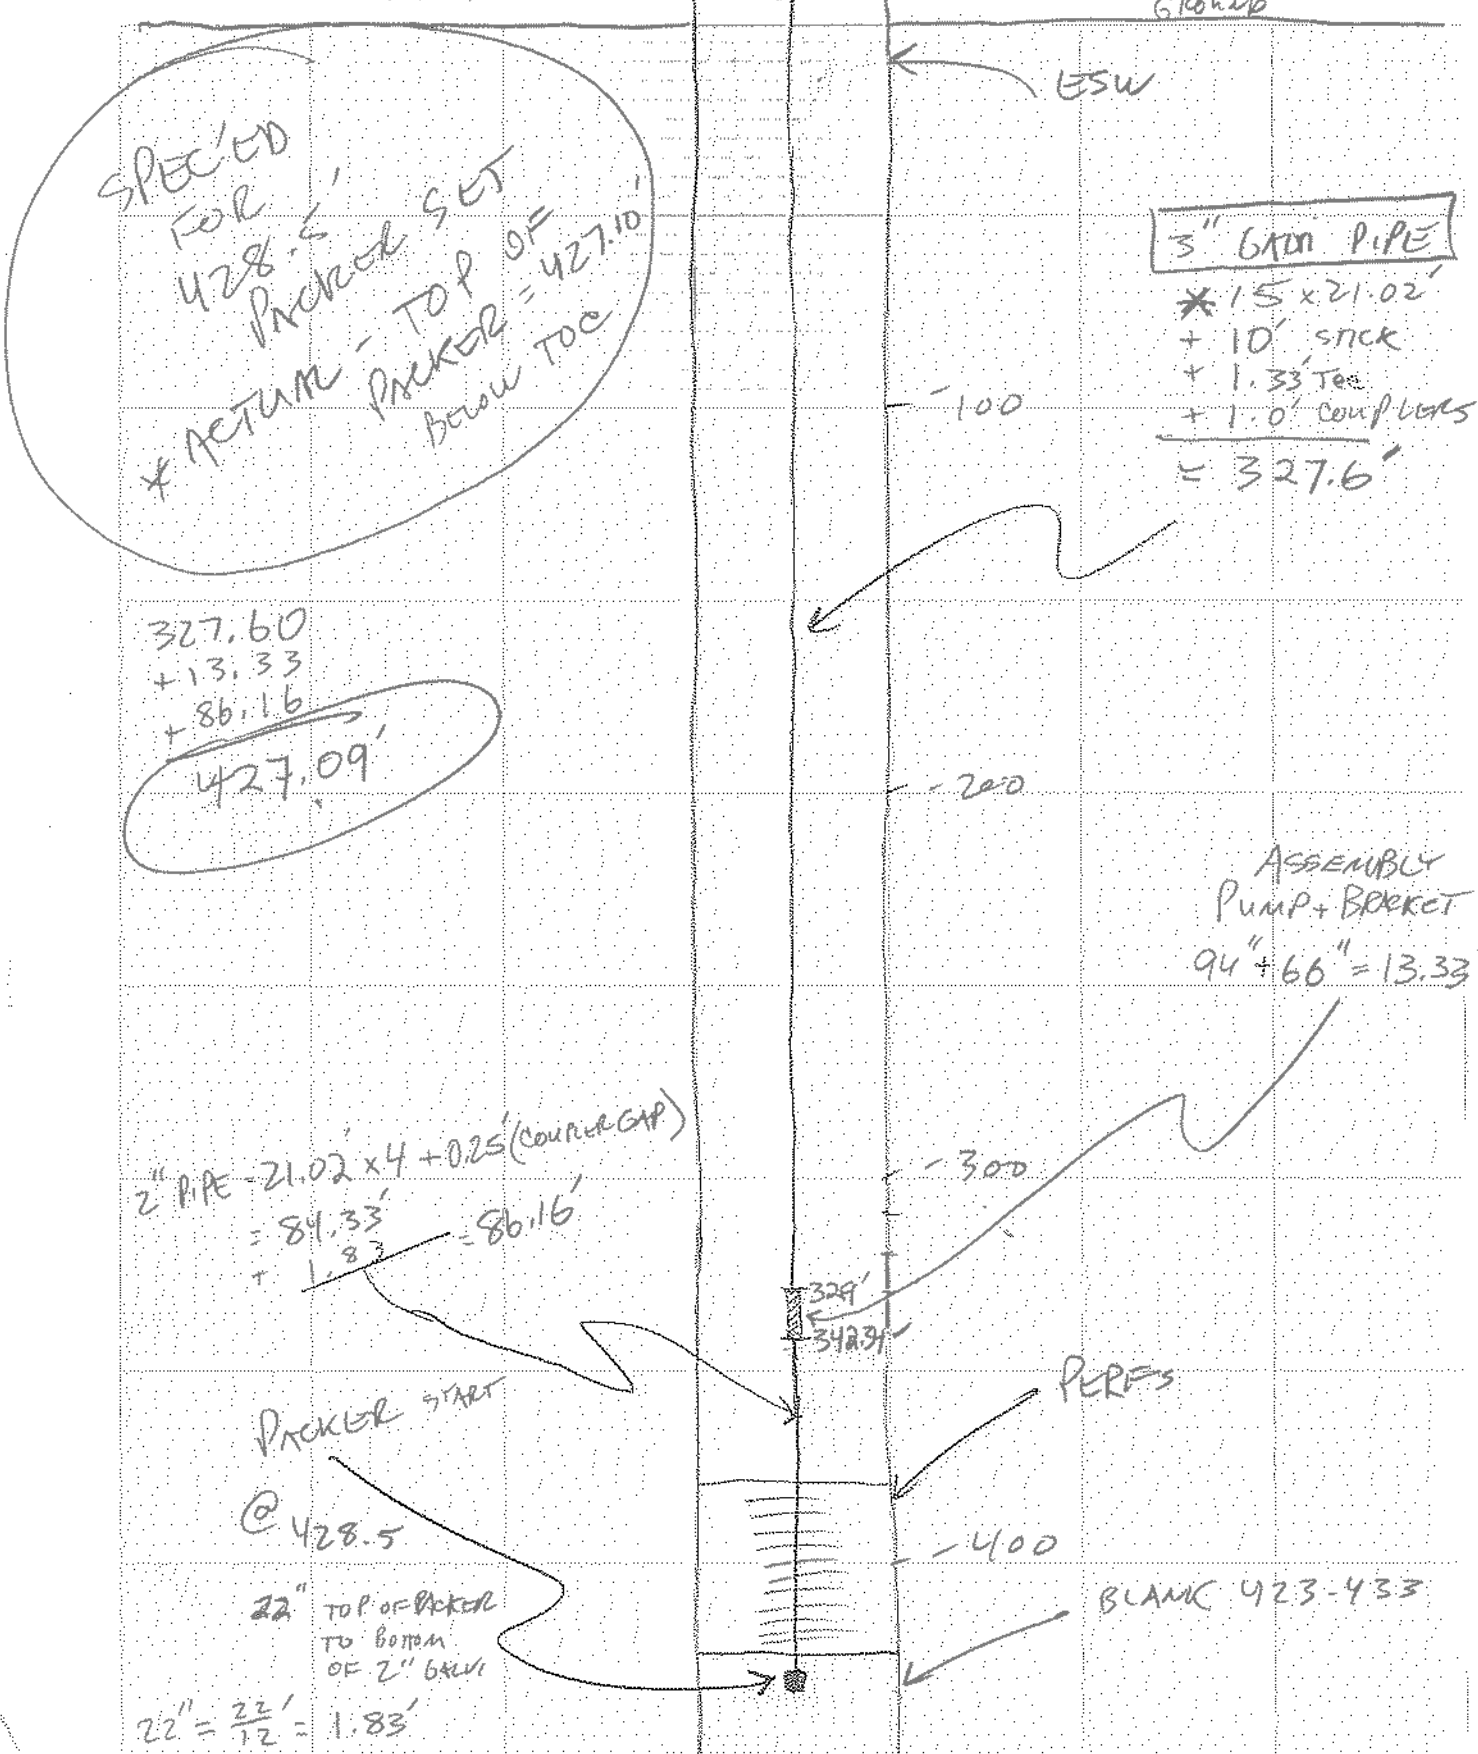 GROUND
ESW
SPEC'ED
FOR
428.5'
PACKER SET
* ACTUAL - TOP OF
PACKER = 427.10'
BELOW TOC
3" GALV PIPE
* 15 x 21.02'
+ 10' STICK
+ 1.33' Tee
+ 1.0' COUPLERS
= 327.6'
-100
327.60
+13.33
+86.16
427.09'
-200
ASSEMBLY
PUMP + BRACKET
94" + 66" = 13.33
2" PIPE - 21.02' x 4 + 0.25' (COUPLER GAP)
= 84.33'
+ 1.83
= 86.16'
-300
329'
342.34'
PERFS
PACKER START
@ 428.5
-400
BLANK 423-433
22" TOP OF PACKER
TO BOTTOM
OF 2" GALV.
22" = 22'/12 = 1.83'